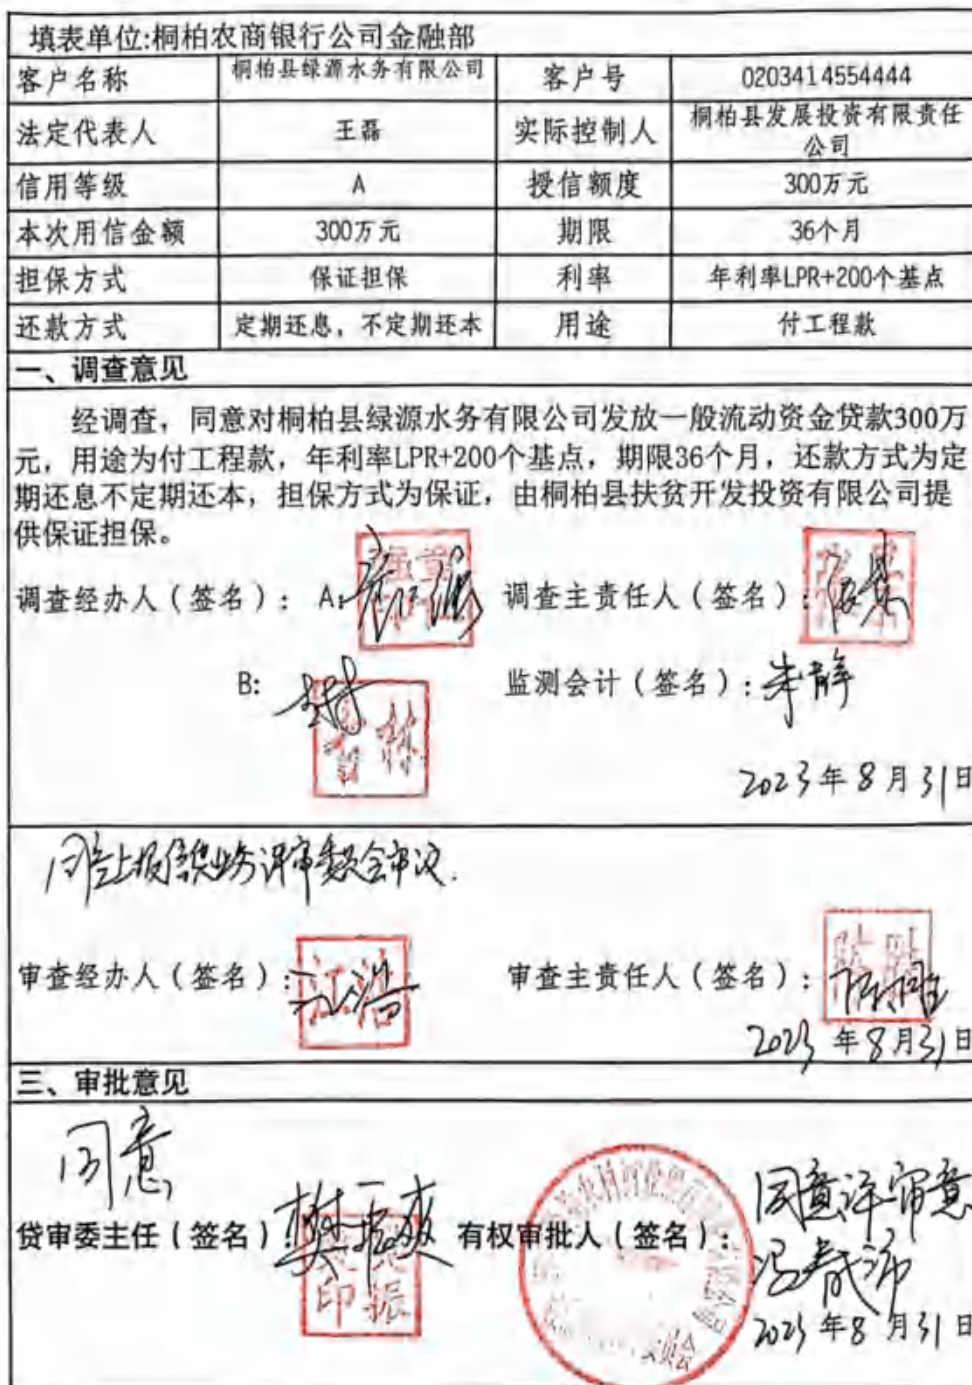 填表单位:桐柏农商银行公司金融部
客户名称 桐柏县绿源水务有限公司 客户号 0203414554444
法定代表人 王磊 实际控制人 桐柏县发展投资有限责任
公司
信用等级 A 授信额度 300万元
本次用信金额 300万元 期限 36个月
担保方式 保证担保 利率 年利率LPR+200个基点
还款方式 定期还息，不定期还本 用途 付工程款
一、调查意见
经调查，同意对桐柏县绿源水务有限公司发放一般流动资金贷款300万
元，用途为付工程款，年利率LPR+200个基点，期限36个月，还款方式为定
期还息不定期还本，担保方式为保证，由桐柏县扶贫开发投资有限公司提
供保证担保。
调查经办人（签名）： A: 调查主责任人（签名）：
B: 监测会计（签名）：朱静
2023年8月31日
同意上报信贷业务评审委员会审议.
审查经办人（签名）：江浩 审查主责任人（签名）：
2023年8月31日
三、审批意见
同意
贷审委主任（签名） 樊振爽 有权审批人（签名）：
同意评审意
2023年8月31日